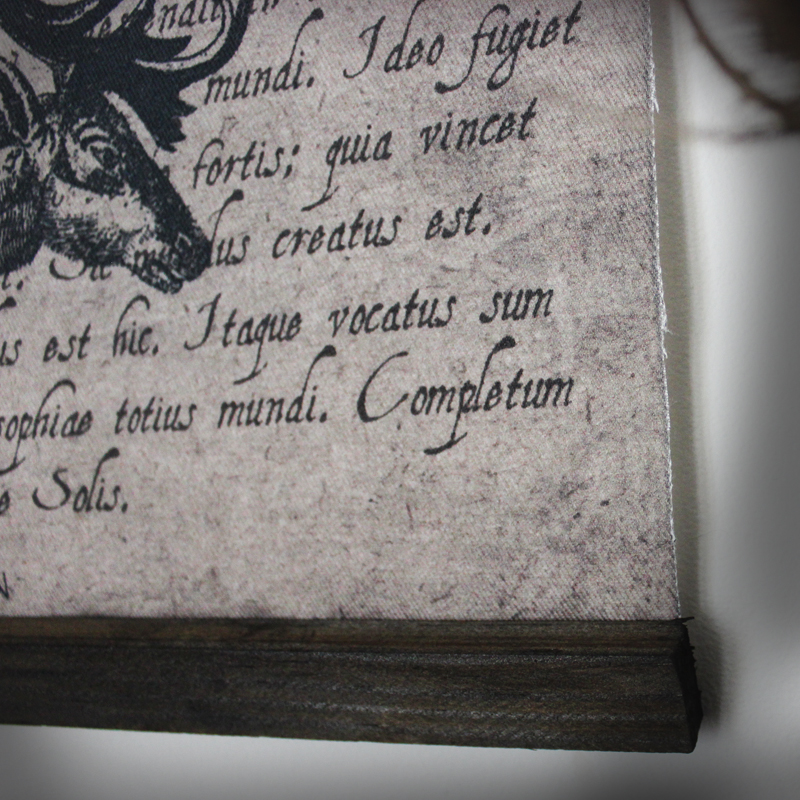 mundi. Ideo fugiet
fortis; quia vincet
creatus est.
est hic. Itaque vocatus sum
sophiae totius mundi. Completum
Solis.